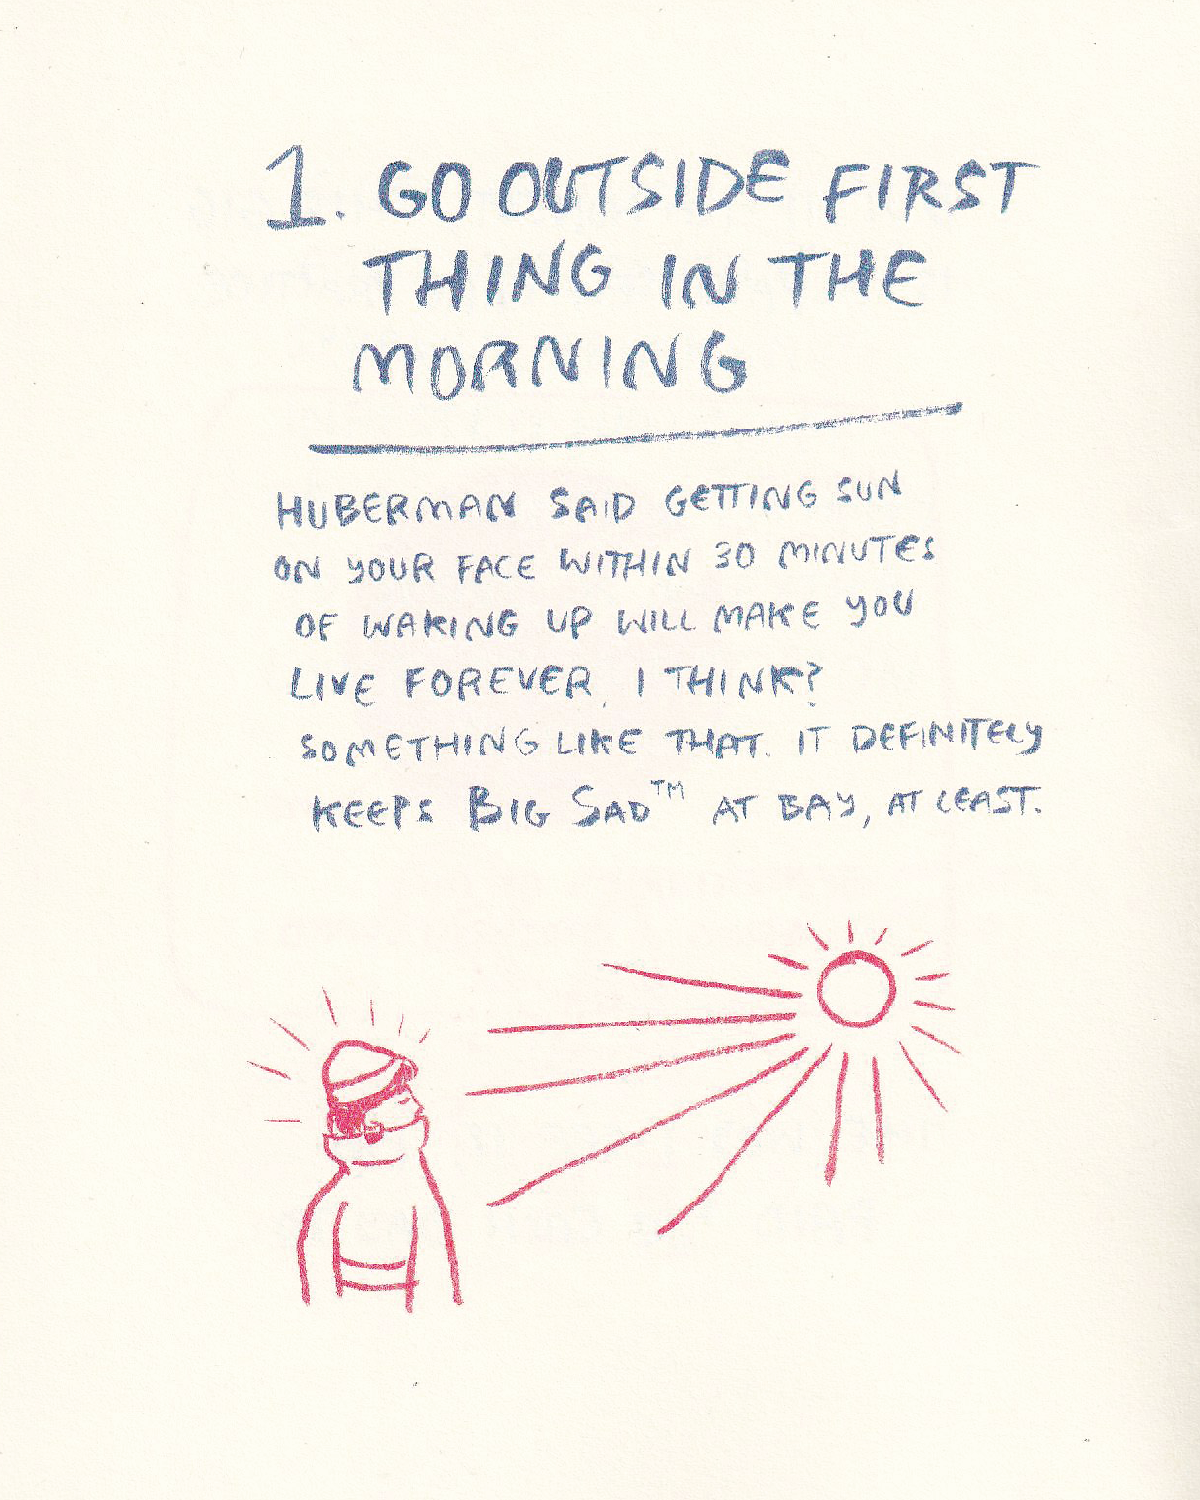 1. GO OUTSIDE FIRST
THING IN THE
MORNING
HUBERMAN SAID GETTING SUN
ON YOUR FACE WITHIN 30 MINUTES
OF WAKING UP WILL MAKE YOU
LIVE FOREVER, I THINK?
SOMETHING LIKE THAT. IT DEFINITELY
KEEPS BIG SAD™ AT BAY, AT LEAST.